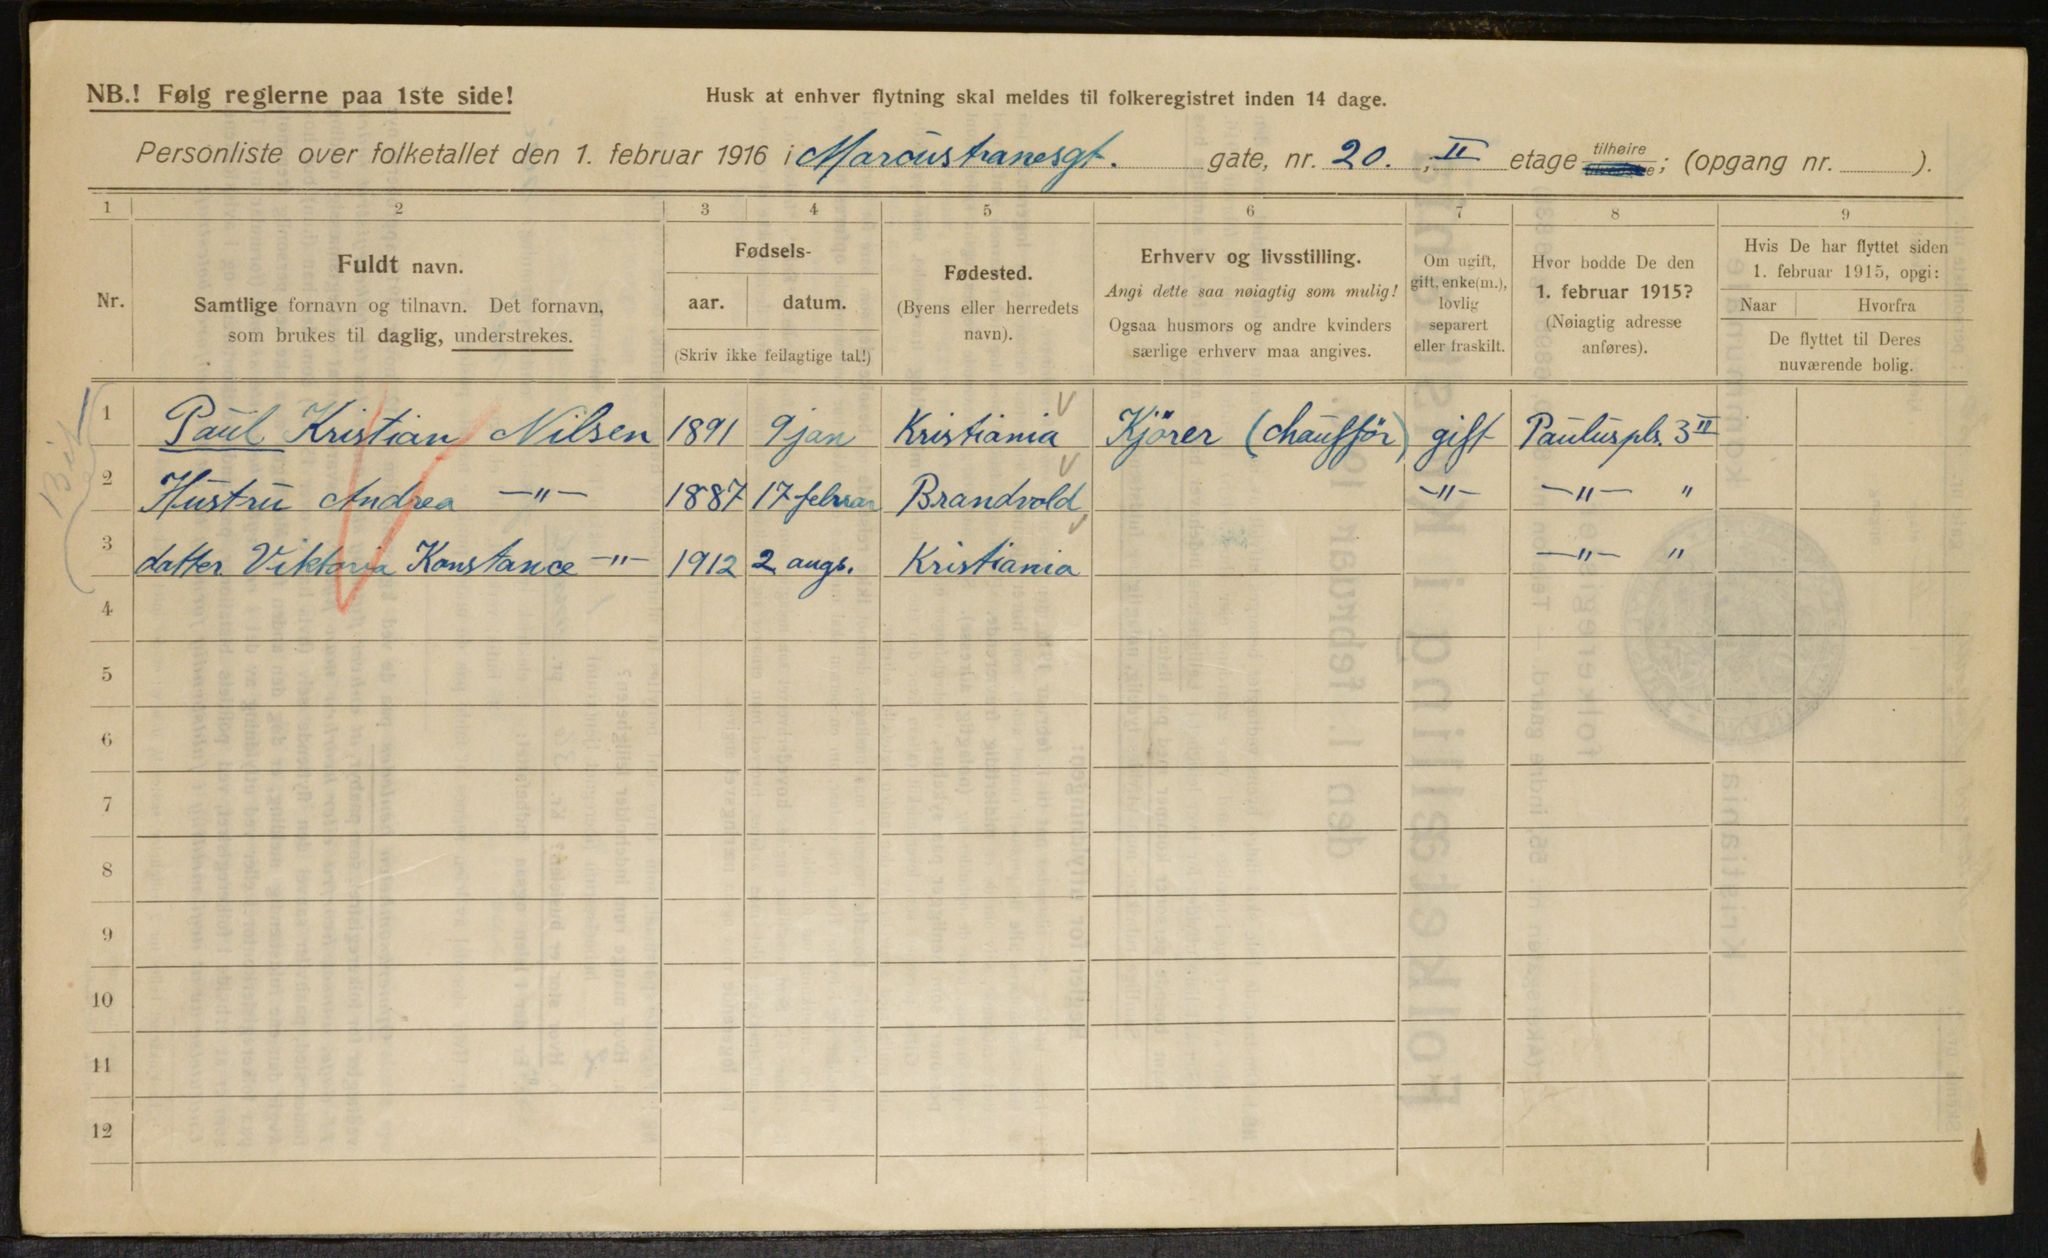 NB.! Følg reglerne paa 1ste side!
Husk at enhver flytning skal meldes til folkeregistret inden 14 dage.
Personliste over folketallet den 1. februar 1916 i Marcustranesgt. gate, nr. 20., II etage tilhøire; (opgang nr. ).
1 2 3 4 5 6 7 8 9
Nr.
Fuldt navn.
Samtlige fornavn og tilnavn. Det fornavn,
som brukes til daglig, understrekes.
Fødsels-
aar. datum.
(Skriv ikke feilagtige tal!)
Fødested.
(Byens eller herredets
navn).
Erhverv og livsstilling.
Angi dette saa nøiagtig som mulig!
Ogsaa husmors og andre kvinders
særlige erhverv maa angives.
Om ugift,
gift, enke(m.),
lovlig
separert
eller fraskilt.
Hvor bodde De den
1. februar 1915?
(Nøiagtig adresse
anføres).
Hvis De har flyttet siden
1. februar 1915, opgi:
Naar Hvorfra
De flyttet til Deres
nuværende bolig.
1 Paul Kristian Nilsen 1891 9 jan Kristiania Kjører (chauffør) gift Pauluspls. 3 II
2 Hustru Andrea —"— 1887 17 februar Brandvold —"— —"— "
3 datter Viktoria Konstance —"— 1912 2 augs. Kristiania —"— "
4
5
6
7
8
9
10
11
12